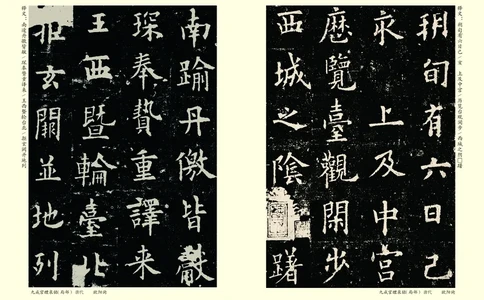 南踰丹徼皆獻
琛奉贄重譯來
王西暨輪臺北
拒玄闕並地列
九成宮醴泉銘(局部) 唐代 歐陽詢
朔旬有六日己
亥上及中宮
歷覽臺觀閑步
西城之陰躇
九成宮醴泉銘(局部) 唐代 歐陽詢